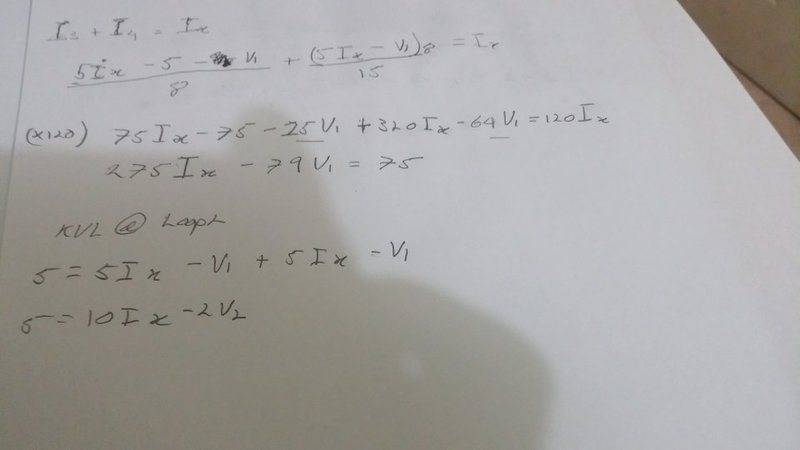 I₃ + I₄ = Iₓ
(5Ix - 5 - V₁)/8 + (5Iₓ - V₁)8/15 = Iₓ
(x120) 75Ix - 75 - 25V₁ + 320Iₓ - 64V₁ = 120Iₓ
275Ix - 79V₁ = 75
KVL @ Loop2
5 = 5Ix - V₁ + 5Ix - V₁
5 = 10Ix - 2V₂